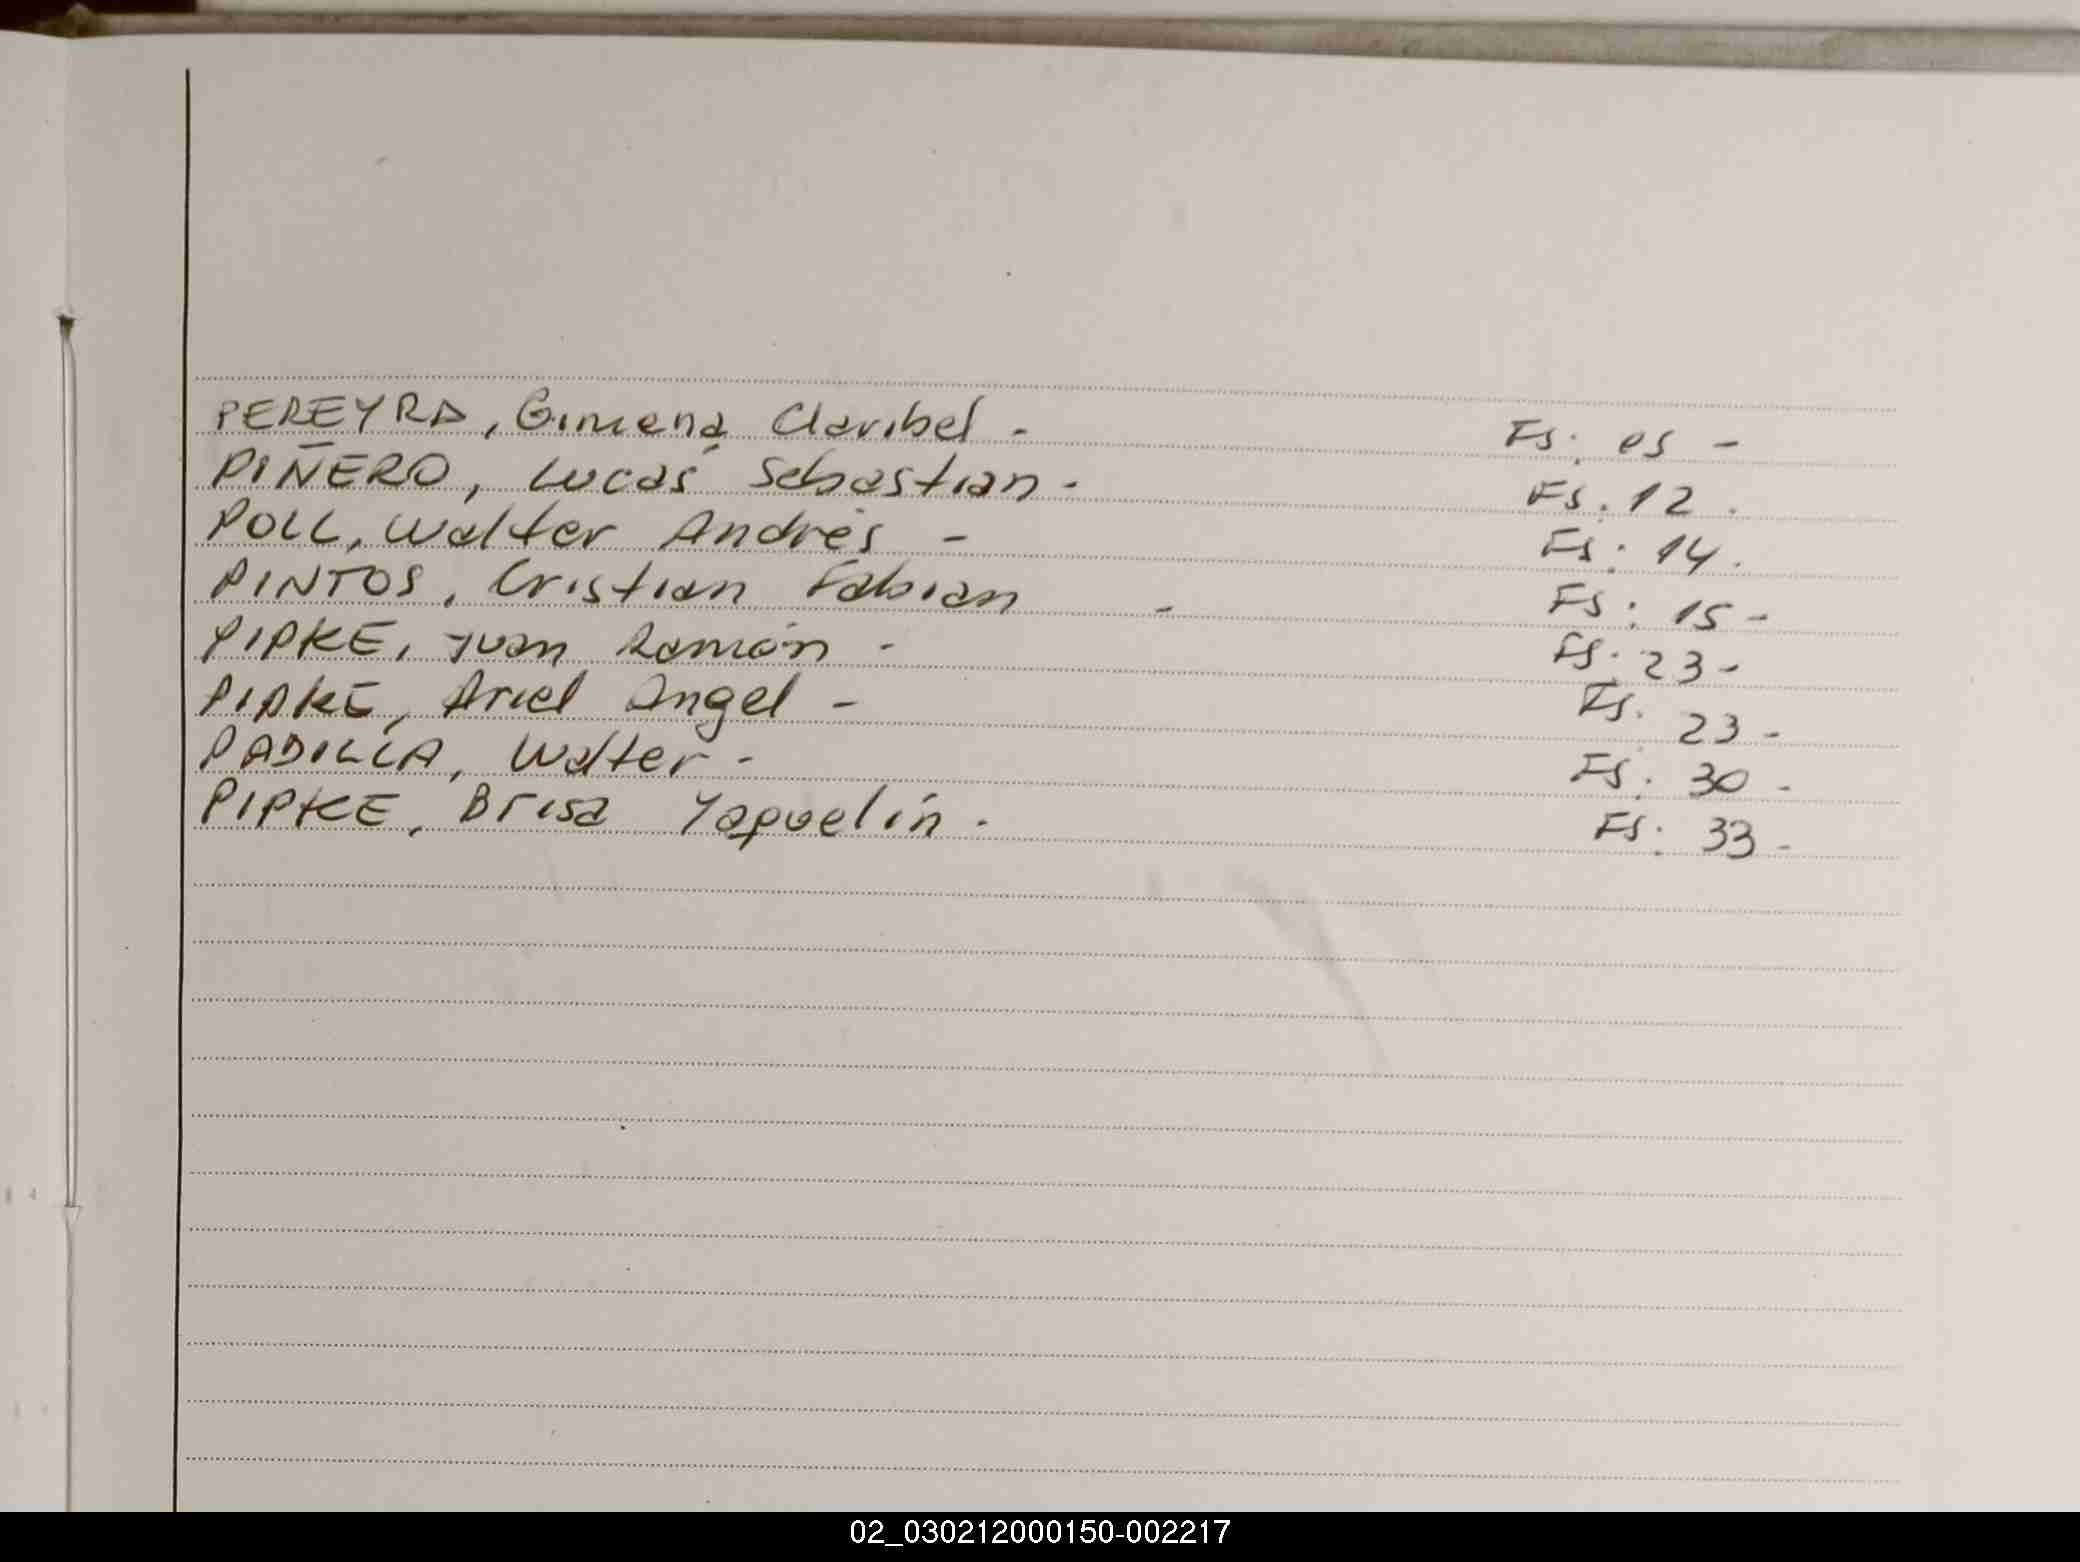 PEREYRA, Gimena Claribel - Fs: 05 -
PIÑERO, Lucas Sebastian - Fs. 12.
POLL, Walter Andrés - Fs: 14.
PINTOS, Cristian Fabian - Fs: 15 -
PIPKE, Juan Ramón - Fs. 23 -
PIPKE, Ariel Angel - Fs. 23 -
PADILLA, Walter - Fs: 30 -
PIPKE, Brisa Yaquelín. Fs: 33 -
02_030212000150-002217